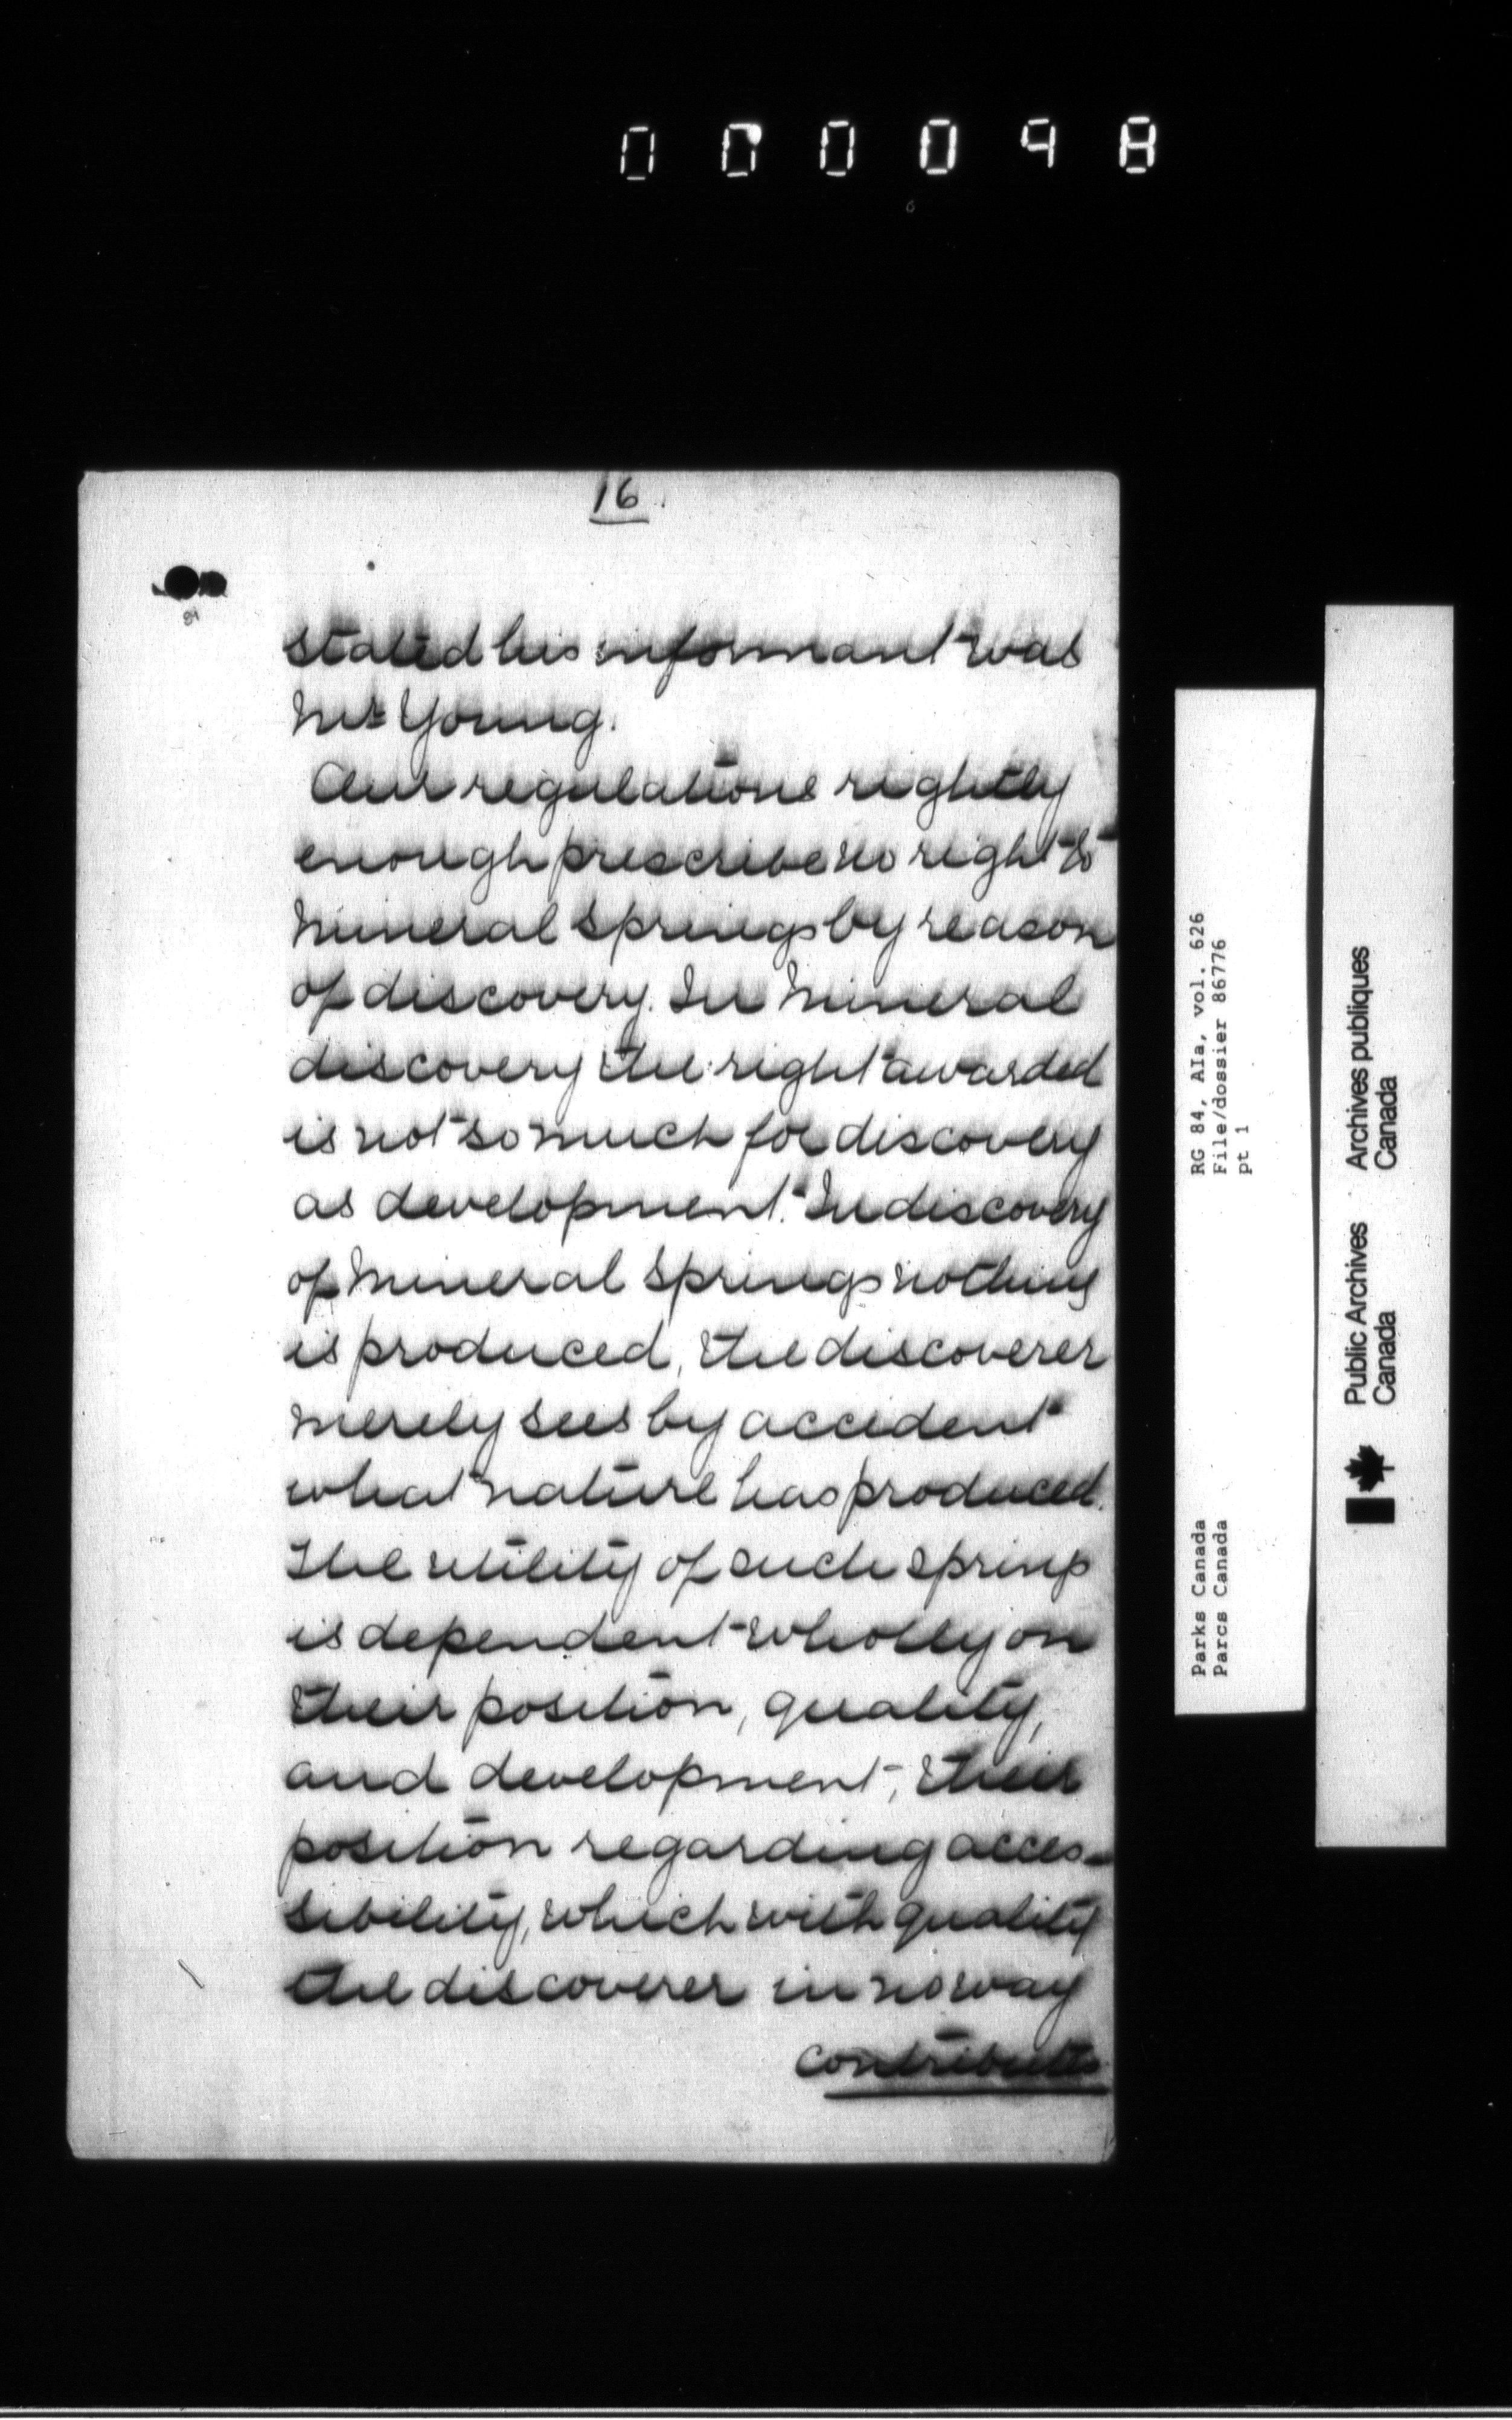 000098
16.
stated his informant was
Mr Young.
Our regulations rightly
enough prescribe no right to
mineral springs by reason
of discovery. In mineral
discovery the right awarded
is not so much for discovery
as development. In discovery
of mineral springs nothing
is produced, the discoverer
merely sees by accident
what nature has produced.
The utility of such springs
is dependent wholly on
their position, quality,
and development; their
position regarding acces-
sibility, which with quality
the discoverer in no way
contributes
RG 84, AIa, vol. 626
File/dossier 86776
pt 1
Parks Canada
Parcs Canada
Public Archives
Canada
Archives publiques
Canada